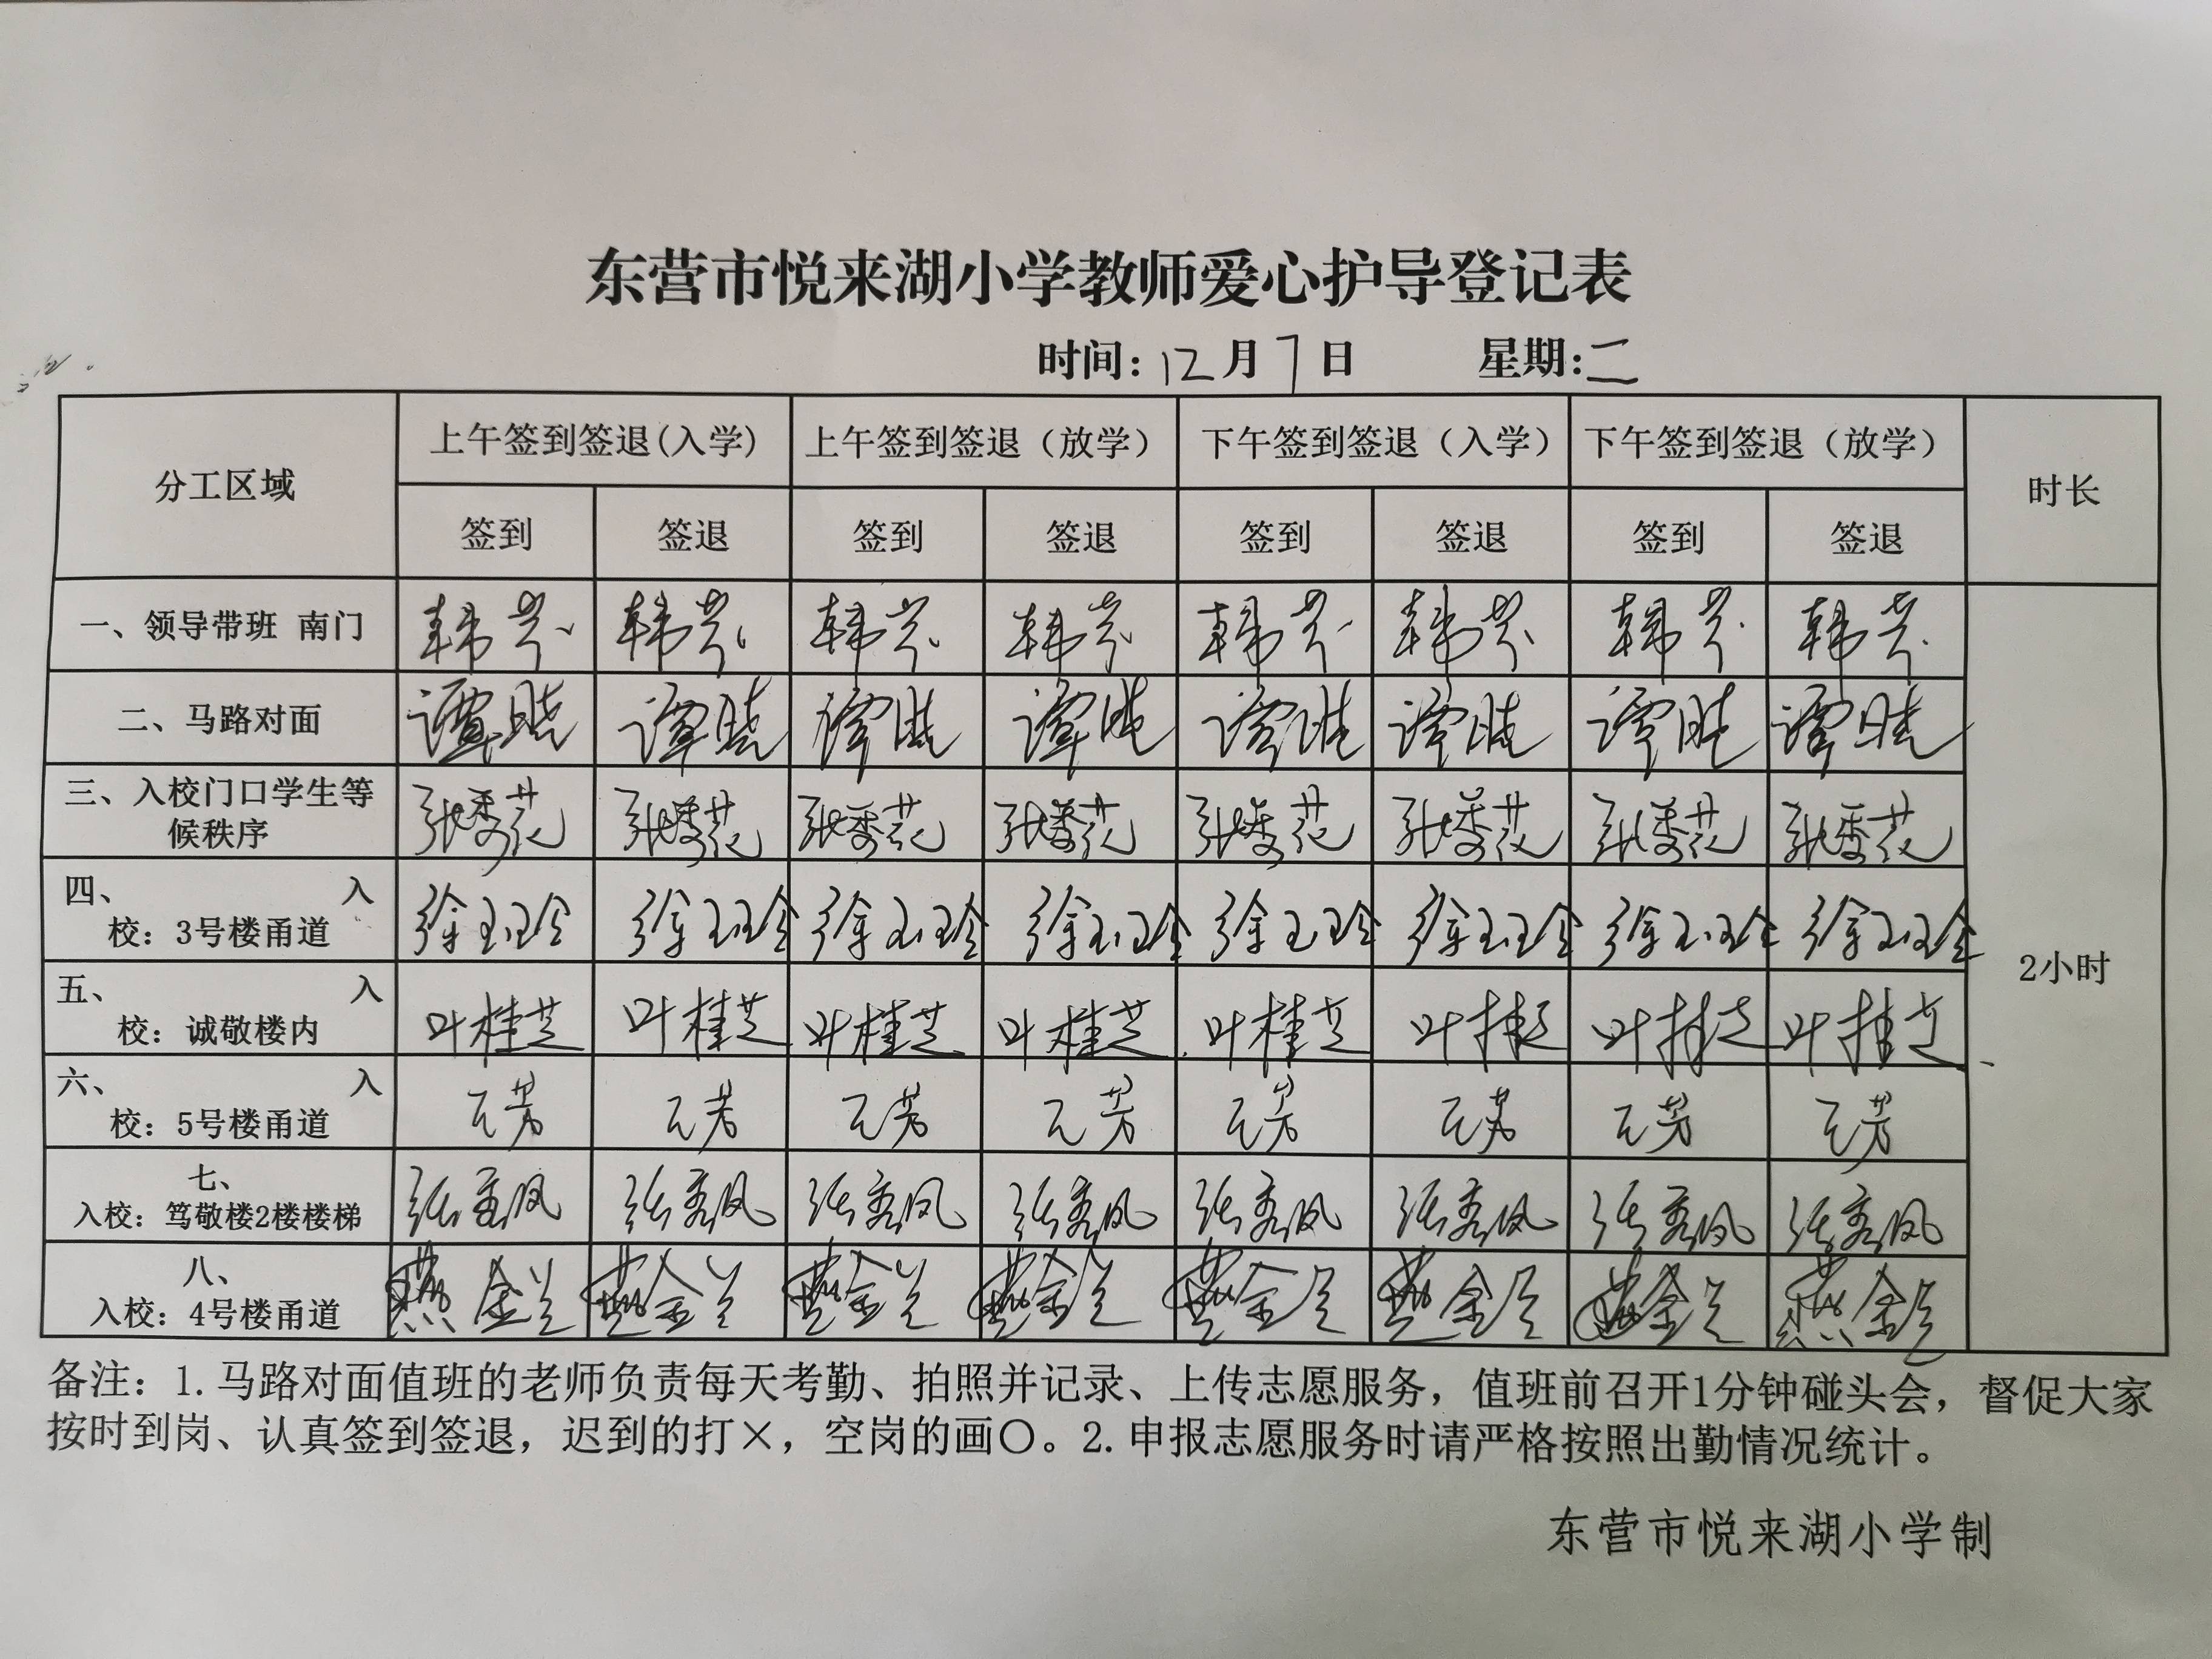 东营市悦来湖小学教师爱心护导登记表
时间：12月7日 星期:二
分工区域 上午签到签退(入学) 上午签到签退（放学） 下午签到签退（入学） 下午签到签退（放学） 时长
签到 签退 签到 签退 签到 签退 签到 签退
一、领导带班 南门 韩芳 韩芳 韩芳 韩芳 韩芳 韩芳 韩芳 韩芳
二、马路对面 谭晓 谭晓 谭晓 谭晓 谭晓 谭晓 谭晓 谭晓
三、入校门口学生等
候秩序 张秀花 张秀花 张秀花 张秀花 张秀花 张秀花 张秀花 张秀花
四、 入
校：3号楼甬道 徐玉玲 徐玉玲 徐玉玲 徐玉玲 徐玉玲 徐玉玲 徐玉玲 徐玉玲
2小时
五、 入
校：诚敬楼内 叶桂芝 叶桂芝 叶桂芝 叶桂芝 叶桂芝 叶桂芝 叶桂芝 叶桂芝
六、 入
校：5号楼甬道 芳 芳 芳 芳 芳 芳 芳 芳
七、
入校：笃敬楼2楼楼梯 张秀凤 张秀凤 张秀凤 张秀凤 张秀凤 张秀凤 张秀凤 张秀凤
八、
入校：4号楼甬道 燕金兰 燕金兰 燕金兰 燕金兰 燕金兰 燕金兰 燕金兰 燕金兰
备注：1.马路对面值班的老师负责每天考勤、拍照并记录、上传志愿服务，值班前召开1分钟碰头会，督促大家
按时到岗、认真签到签退，迟到的打×，空岗的画〇。2.申报志愿服务时请严格按照出勤情况统计。
东营市悦来湖小学制